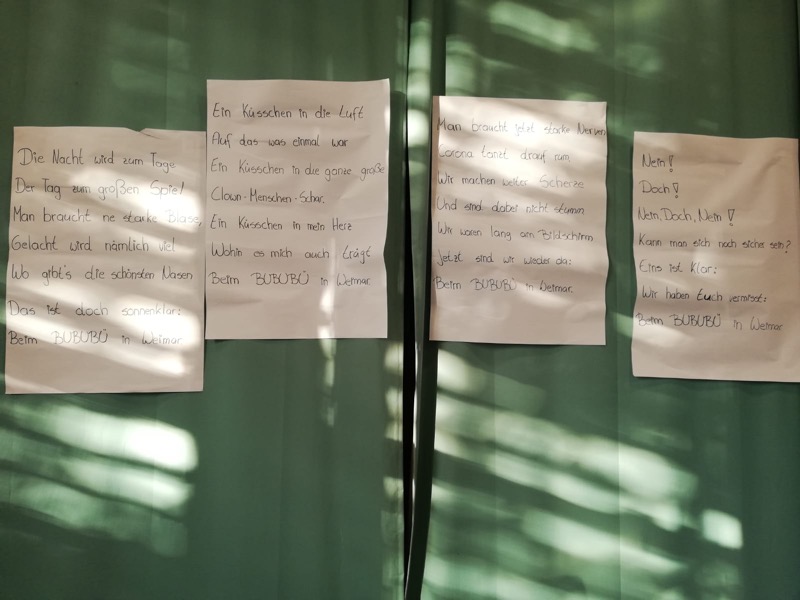 Die Nacht wird zum Tage
Der Tag zum großen Spiel
Man braucht ne starke Blase,
Gelacht wird nämlich viel
Wo gibt's die schönsten Nasen
Das ist doch sonnenklar:
Beim BUBUBÜ in Weimar
Ein Küsschen in die Luft
Auf das was einmal war
Ein Küsschen in die ganze große
Clown-Menschen-Schar.
Ein Küsschen in mein Herz
Wohin es mich auch trägt
Beim BUBUBÜ in Weimar
Man braucht jetzt starke Nerven
Corona tanzt drauf rum
Wir machen weiter Scherze
Und sind dabei nicht stumm
Wir waren lang am Bildschirm
Jetzt sind wir wieder da:
Beim BUBUBÜ in Weimar.
Nein!
Doch!
Nein, Doch, Nein!
Kann man sich noch sicher sein?
Eins ist klar:
Wir haben Euch vermisst:
Beim BUBUBÜ in Weimar